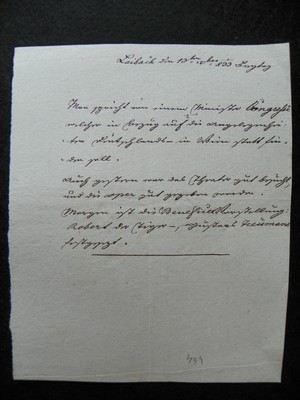 Laibach den 13ten 833
Man spricht von einem Minister Congress
welcher in Bezug auf die Angelegenhei-
ten Deutschlands in Wien statt fin-
den soll.
Auch gestern war das Theater gut besucht,
und die Oper gut gegeben worden.
Morgen ist die Benefice Vorstellung:
Robert der Tiger,
festgesetzt.